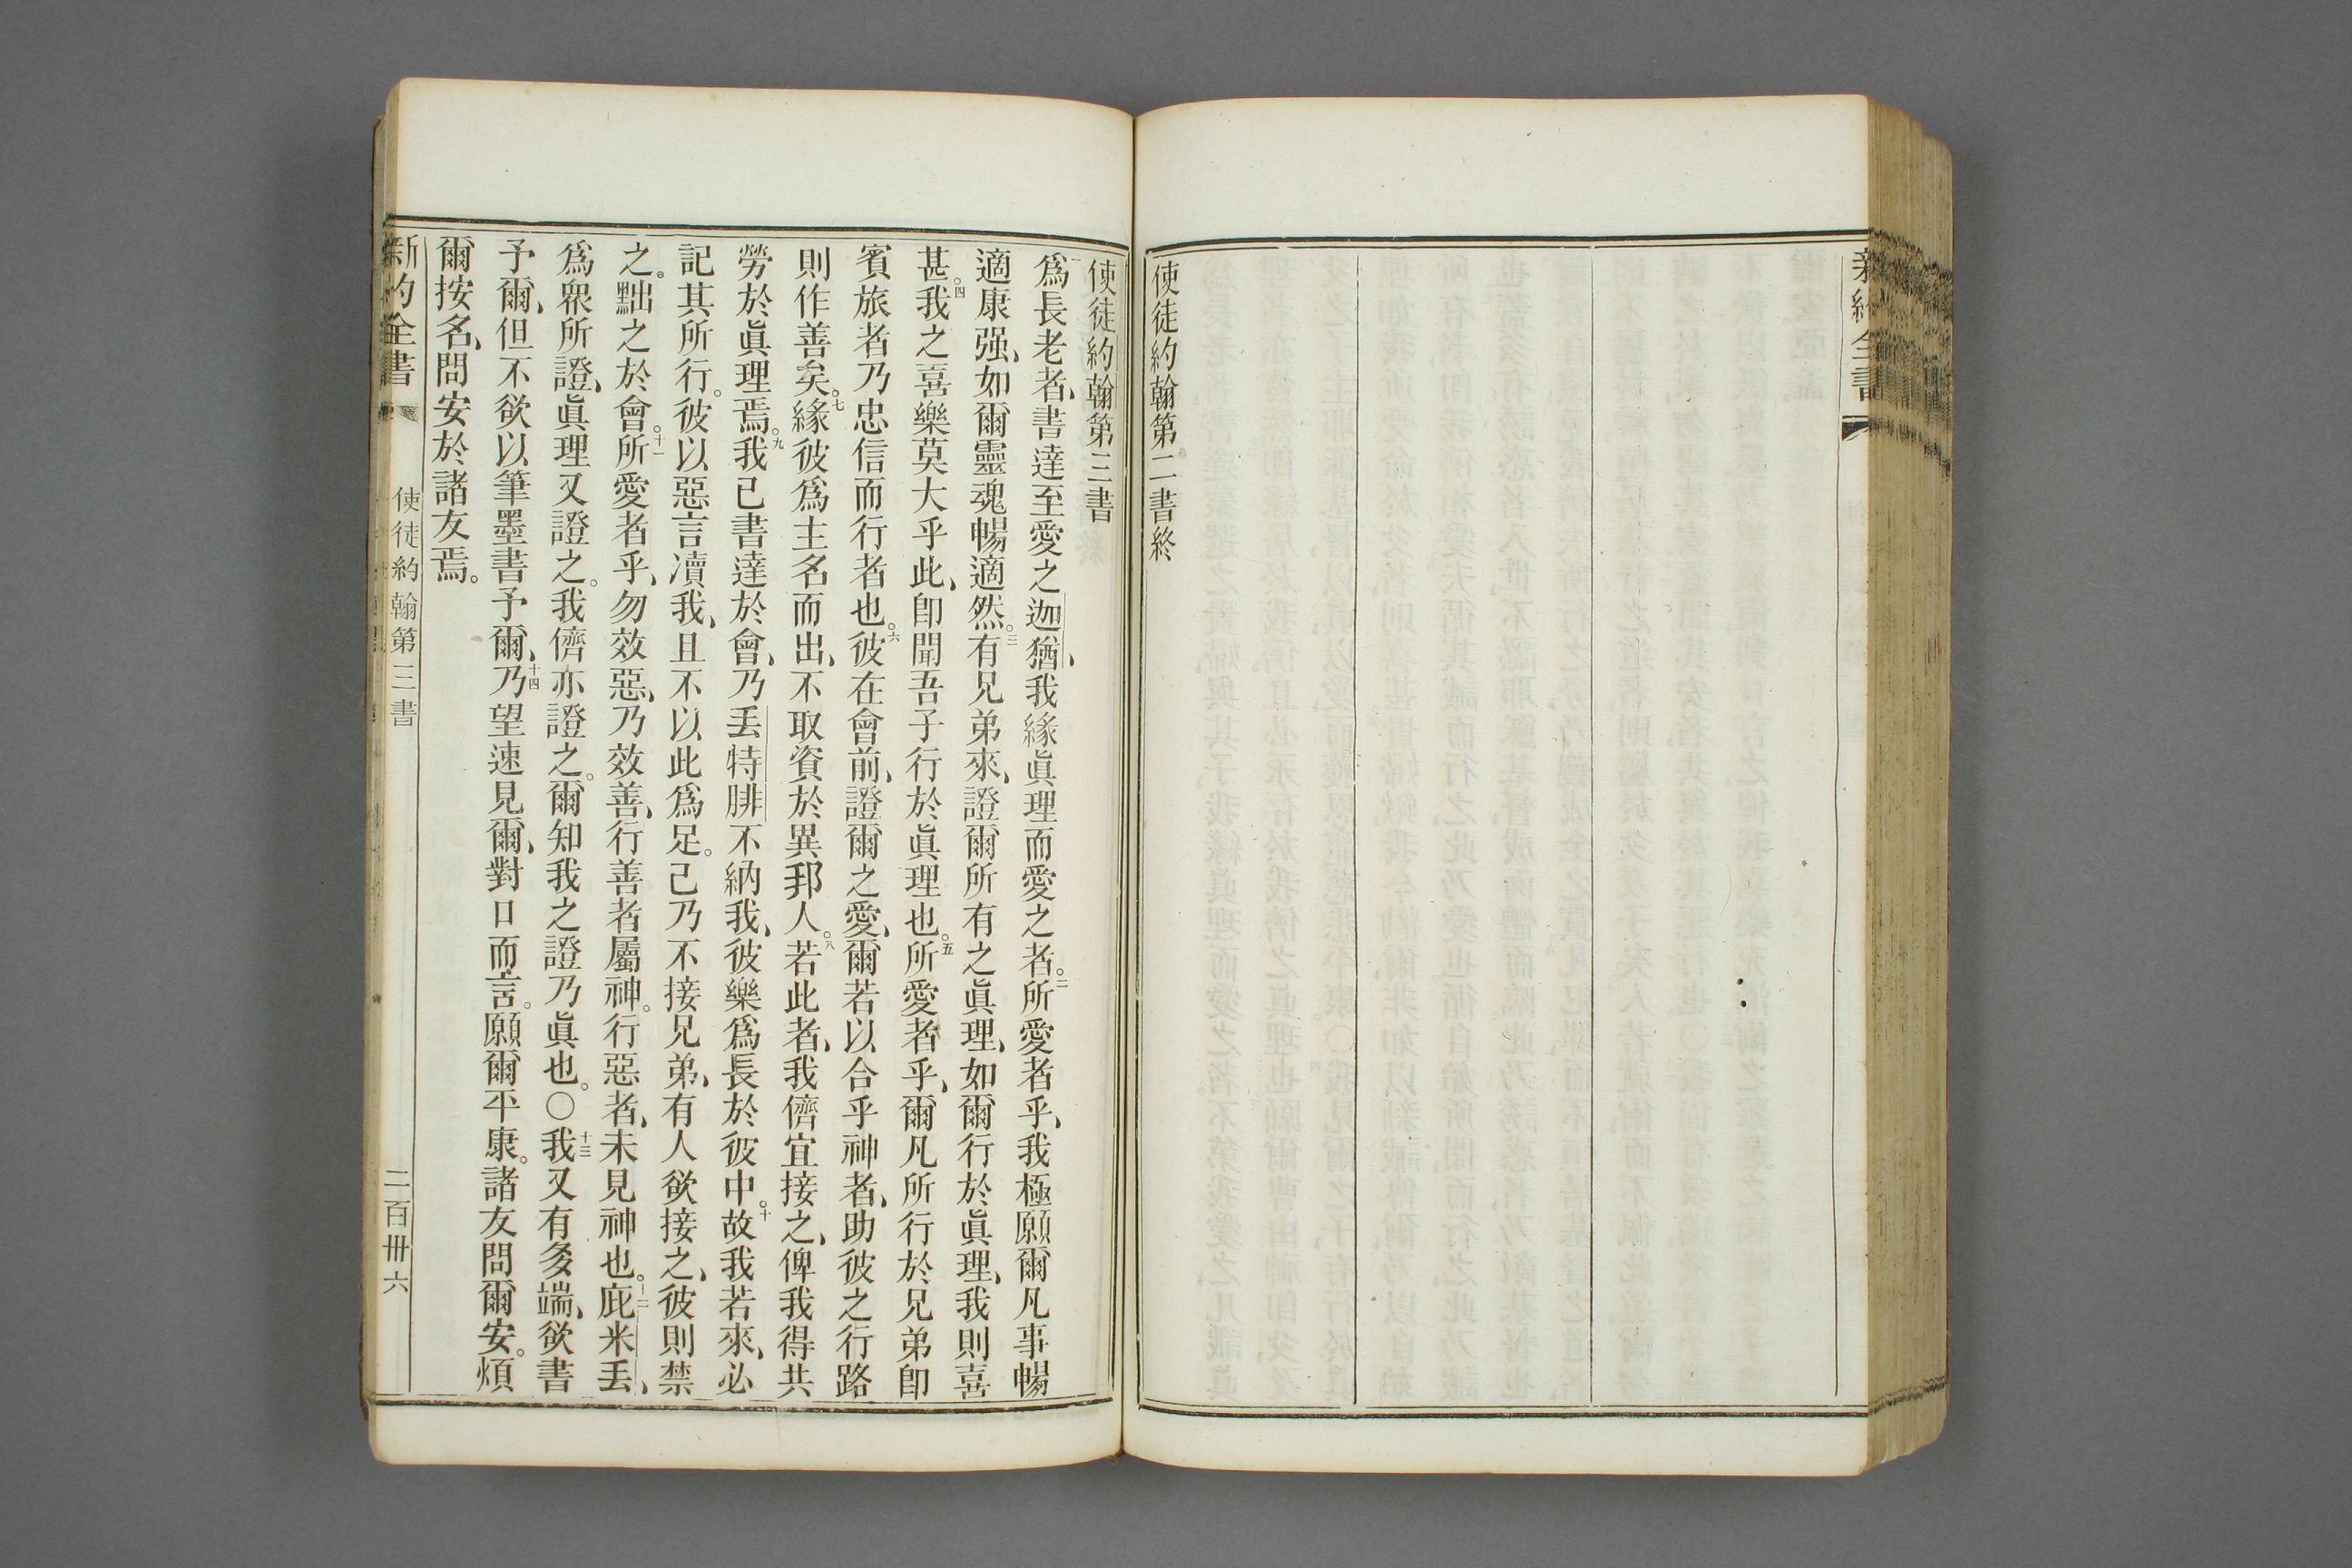 新約全書
使徒約翰第二書終
使徒約翰第三書
一爲長老者、書達至愛之迦猶、我緣眞理而愛之者。二所愛者乎、我極願爾凡事暢
適康强、如爾靈魂暢適然。三有兄弟來、證爾所有之眞理、如爾行於眞理、我則喜
甚。四我之喜樂莫大乎此、卽聞吾子行於眞理也。五所愛者乎、爾凡所行於兄弟卽
賓旅者乃忠信而行者也。六彼在會前、證爾之愛、爾若以合乎神者、助彼之行路
則作善矣。七緣彼爲主名而出、不取資於異邦人。八若此者、我儕宜接之、俾我得共
勞於眞理焉。九我已書達於會、乃丢特腓不納我、彼樂爲長於彼中。十故我若來、必
記其所行。彼以惡言瀆我、且不以此爲足。己乃不接兄弟、有人欲接之、彼則禁
之。黜之於會。十一所愛者乎、勿效惡、乃效善、行善者屬神。行惡者、未見神也。十二庇米丢、
爲衆所證、眞理又證之。我儕亦證之。爾知我之證乃眞也。〇十三我又有多端、欲書
予爾、但不欲以筆墨書予爾、十四乃望速見爾、對口而言。願爾平康。諸友問爾安。煩
爾按名、問安於諸友焉。
新約全書 使徒約翰第三書 二百卌六